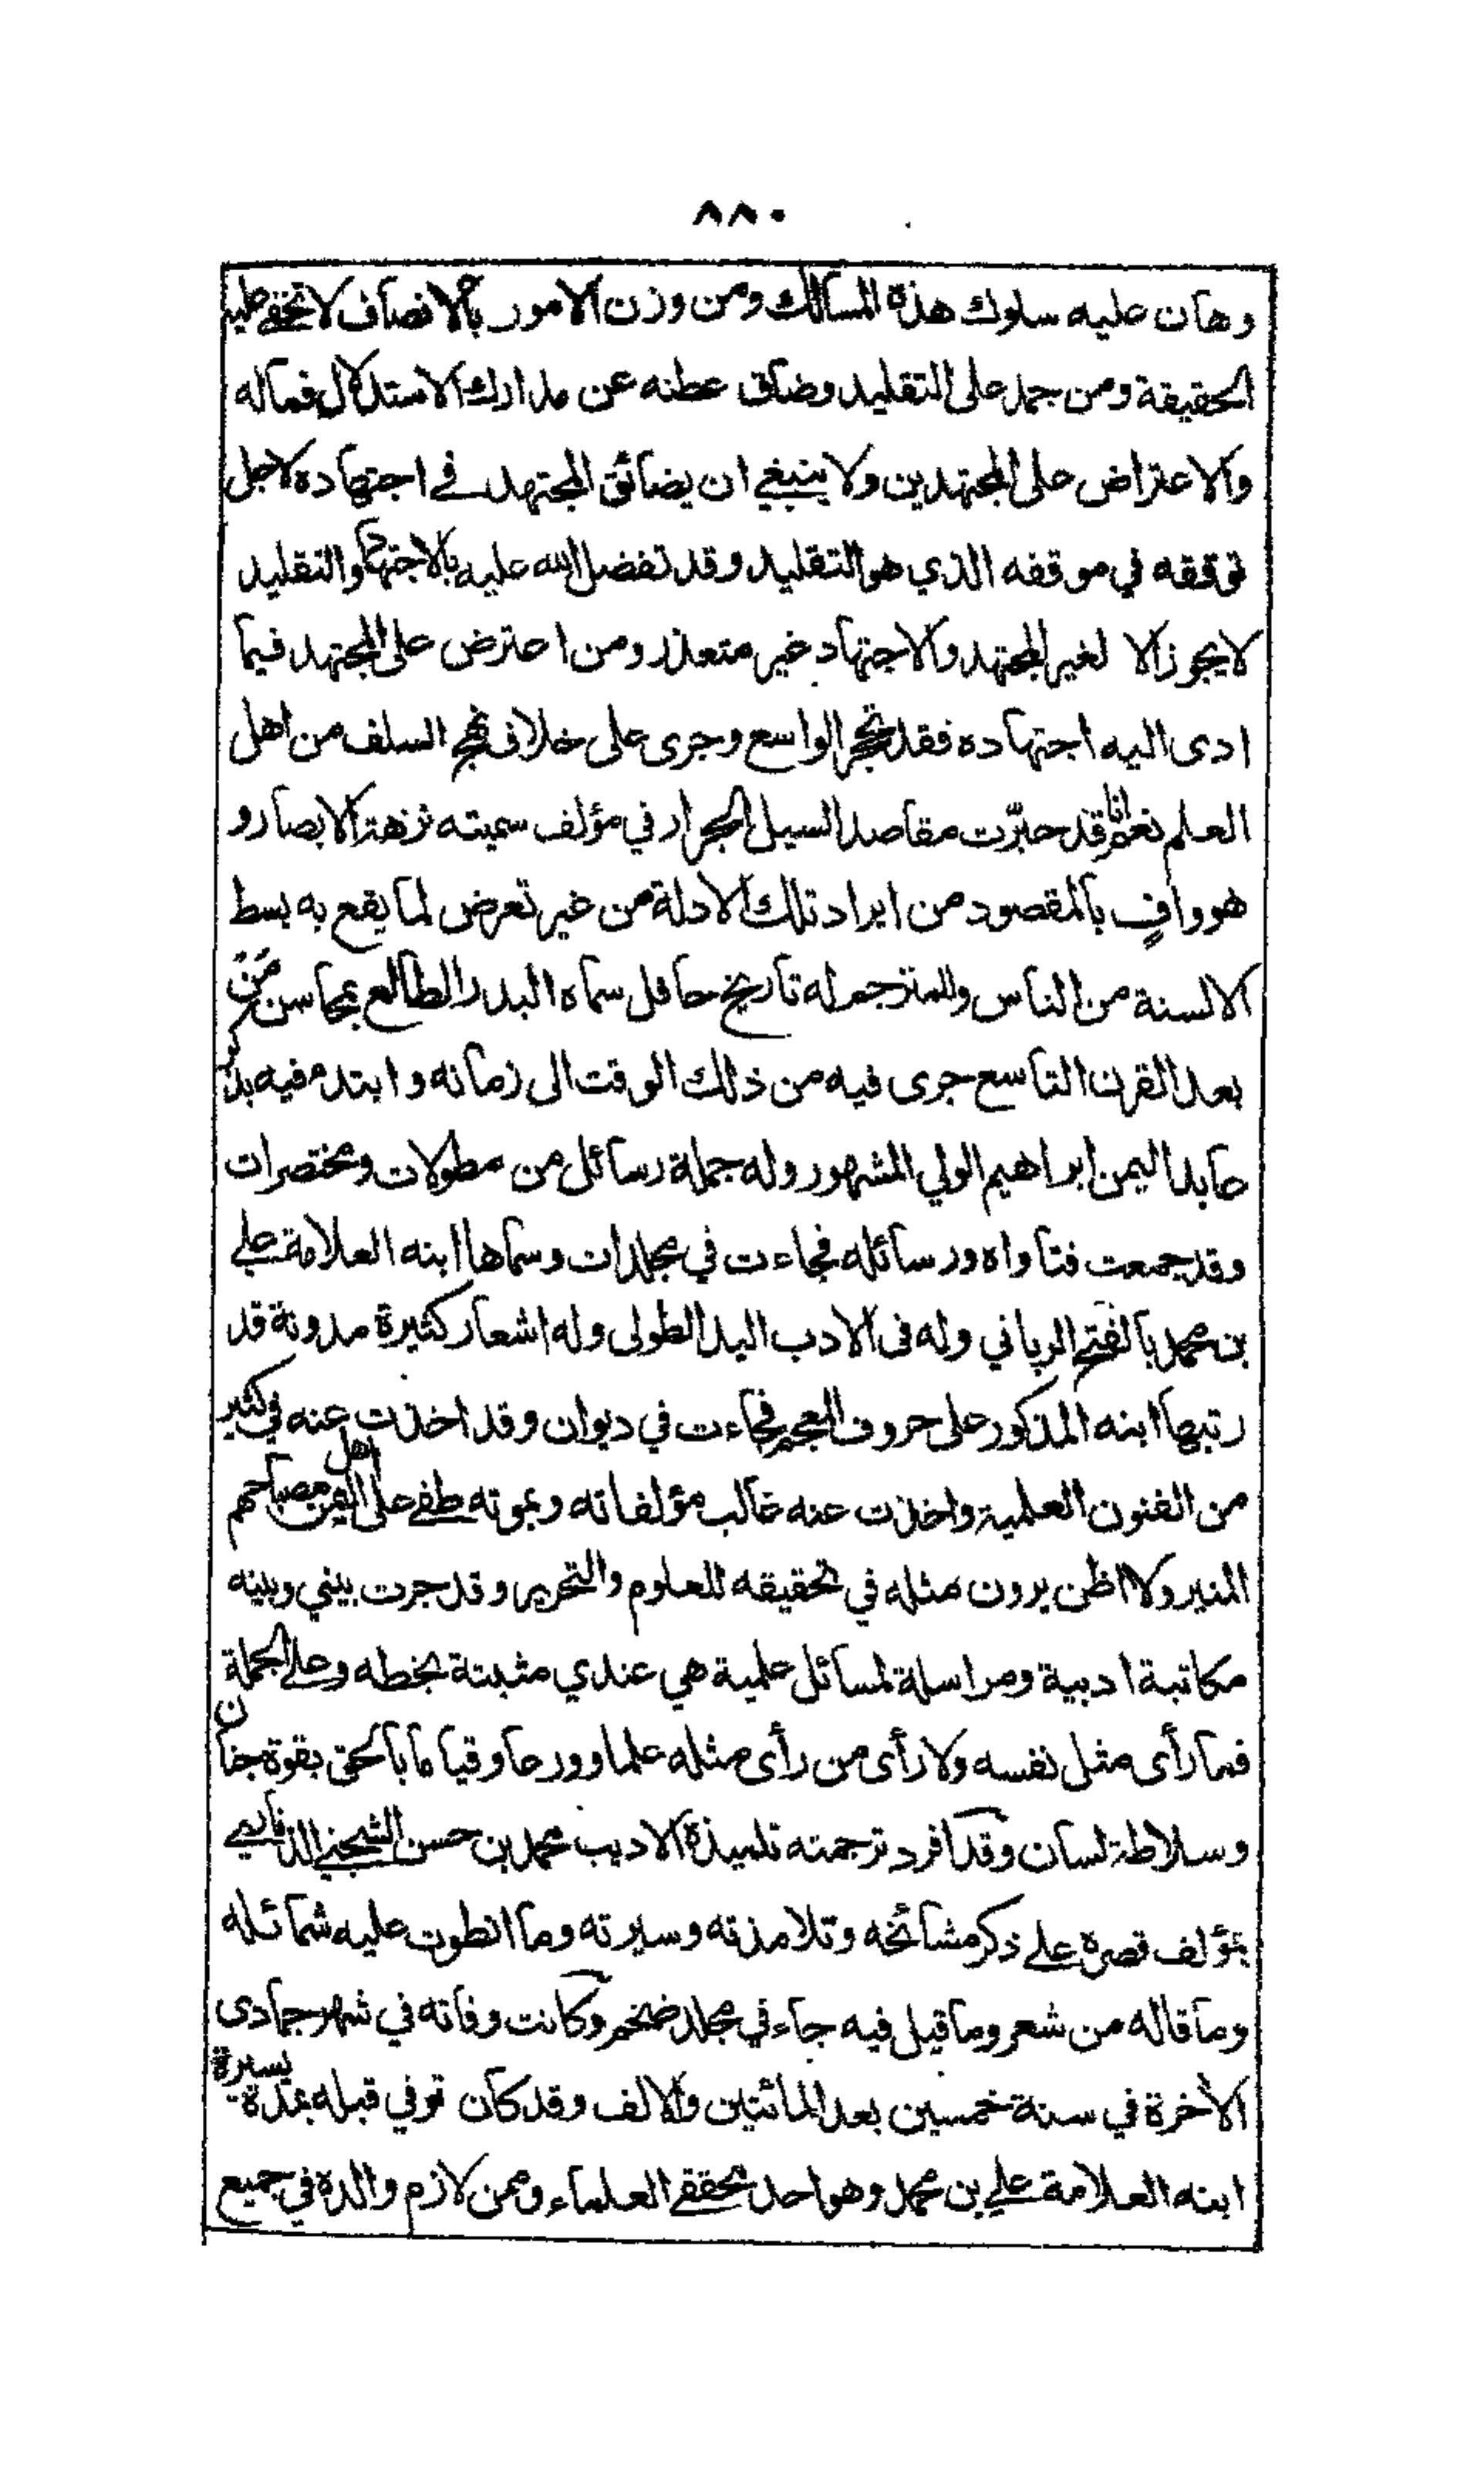 ٨٨٠
وهان عليه سلوك هذه المسالك ومن وزن الامور بالانصاف لا تخفى عليه
الحقيقة ومن جمد على التقليد وضاق عطنه عن مدارك الاستدلال فماله
والاعتراض على المجتهدين ولا ينبغي ان يضائق المجتهد في اجتهاده لاجل
توقفه في موقفه الذي هو التقليد وقد تفضل الله عليه بالاجتهاد والتقليد
لا يجوز الا لغير المجتهد والاجتهاد غير متعذر ومن اعترض على المجتهد فيما
ادى اليه اجتهاده فقد تحجر الواسع وجرى على خلاف نهج السلف من اهل
العلم نعم انا قد حبّرت مقاصد السيل الجرار في مؤلف سميته نزهة الابصار و
هو وافٍ بالمقصود من ايراد تلك الادلة من غير تعرض لما يقع به بسط
الالسنة من الناس وللمترجم له تاريخ حافل سماه البدر الطالع بمحاسن من
بعد القرن التاسع جرى فيه من ذلك الوقت الى زمانه وابتدء فيه بذكر
عابد اليمن ابراهيم الولي المشهور وله جملة رسائل من مطولات ومختصرات
وقد جمعت فتاواه ورسائله فجاءت في مجلدات وسماها ابنه العلامة علي
بن محمد بالفتح الرباني وله في الادب اليد الطولى وله اشعار كثيرة مدونة قد
رتبها ابنه المذكور على حروف المعجم فجاءت في ديوان وقد اخذت عنه في كثير
من الفنون العلمية واخذت عنه غالب مؤلفاته وبموته طفى على اهل اليمن مصباحهم
المنير ولا اظن يرون مثله في تحقيقه للعلوم والتحرير وقد جرت بيني وبينه
مكاتبة ادبية ومراسلة لمسائل علمية هي عندي مثبتة بخطه وعلى الجملة
فما رأى مثل نفسه ولا رأى من رأى مثله علما وورعا وقياما بالحق بقوة جنان
وسلاطة لسان وقد افرد ترجمته تلميذه الاديب محمد بن حسن الشجني الذماري
بمؤلف قصره على ذكر مشائخه وتلامذته وسيرته وما انطوت عليه شمائله
وما قاله من شعر وما قيل فيه جاء في مجلد ضخم وكانت وفاته في شهر جمادى
الاخرة في سنة خمسين بعد المائتين والالف وقد كان توفي قبله بمدة يسيرة
ابنه العلامة علي بن محمد وهو احد محققي العلماء وممن لازم والده في جميع